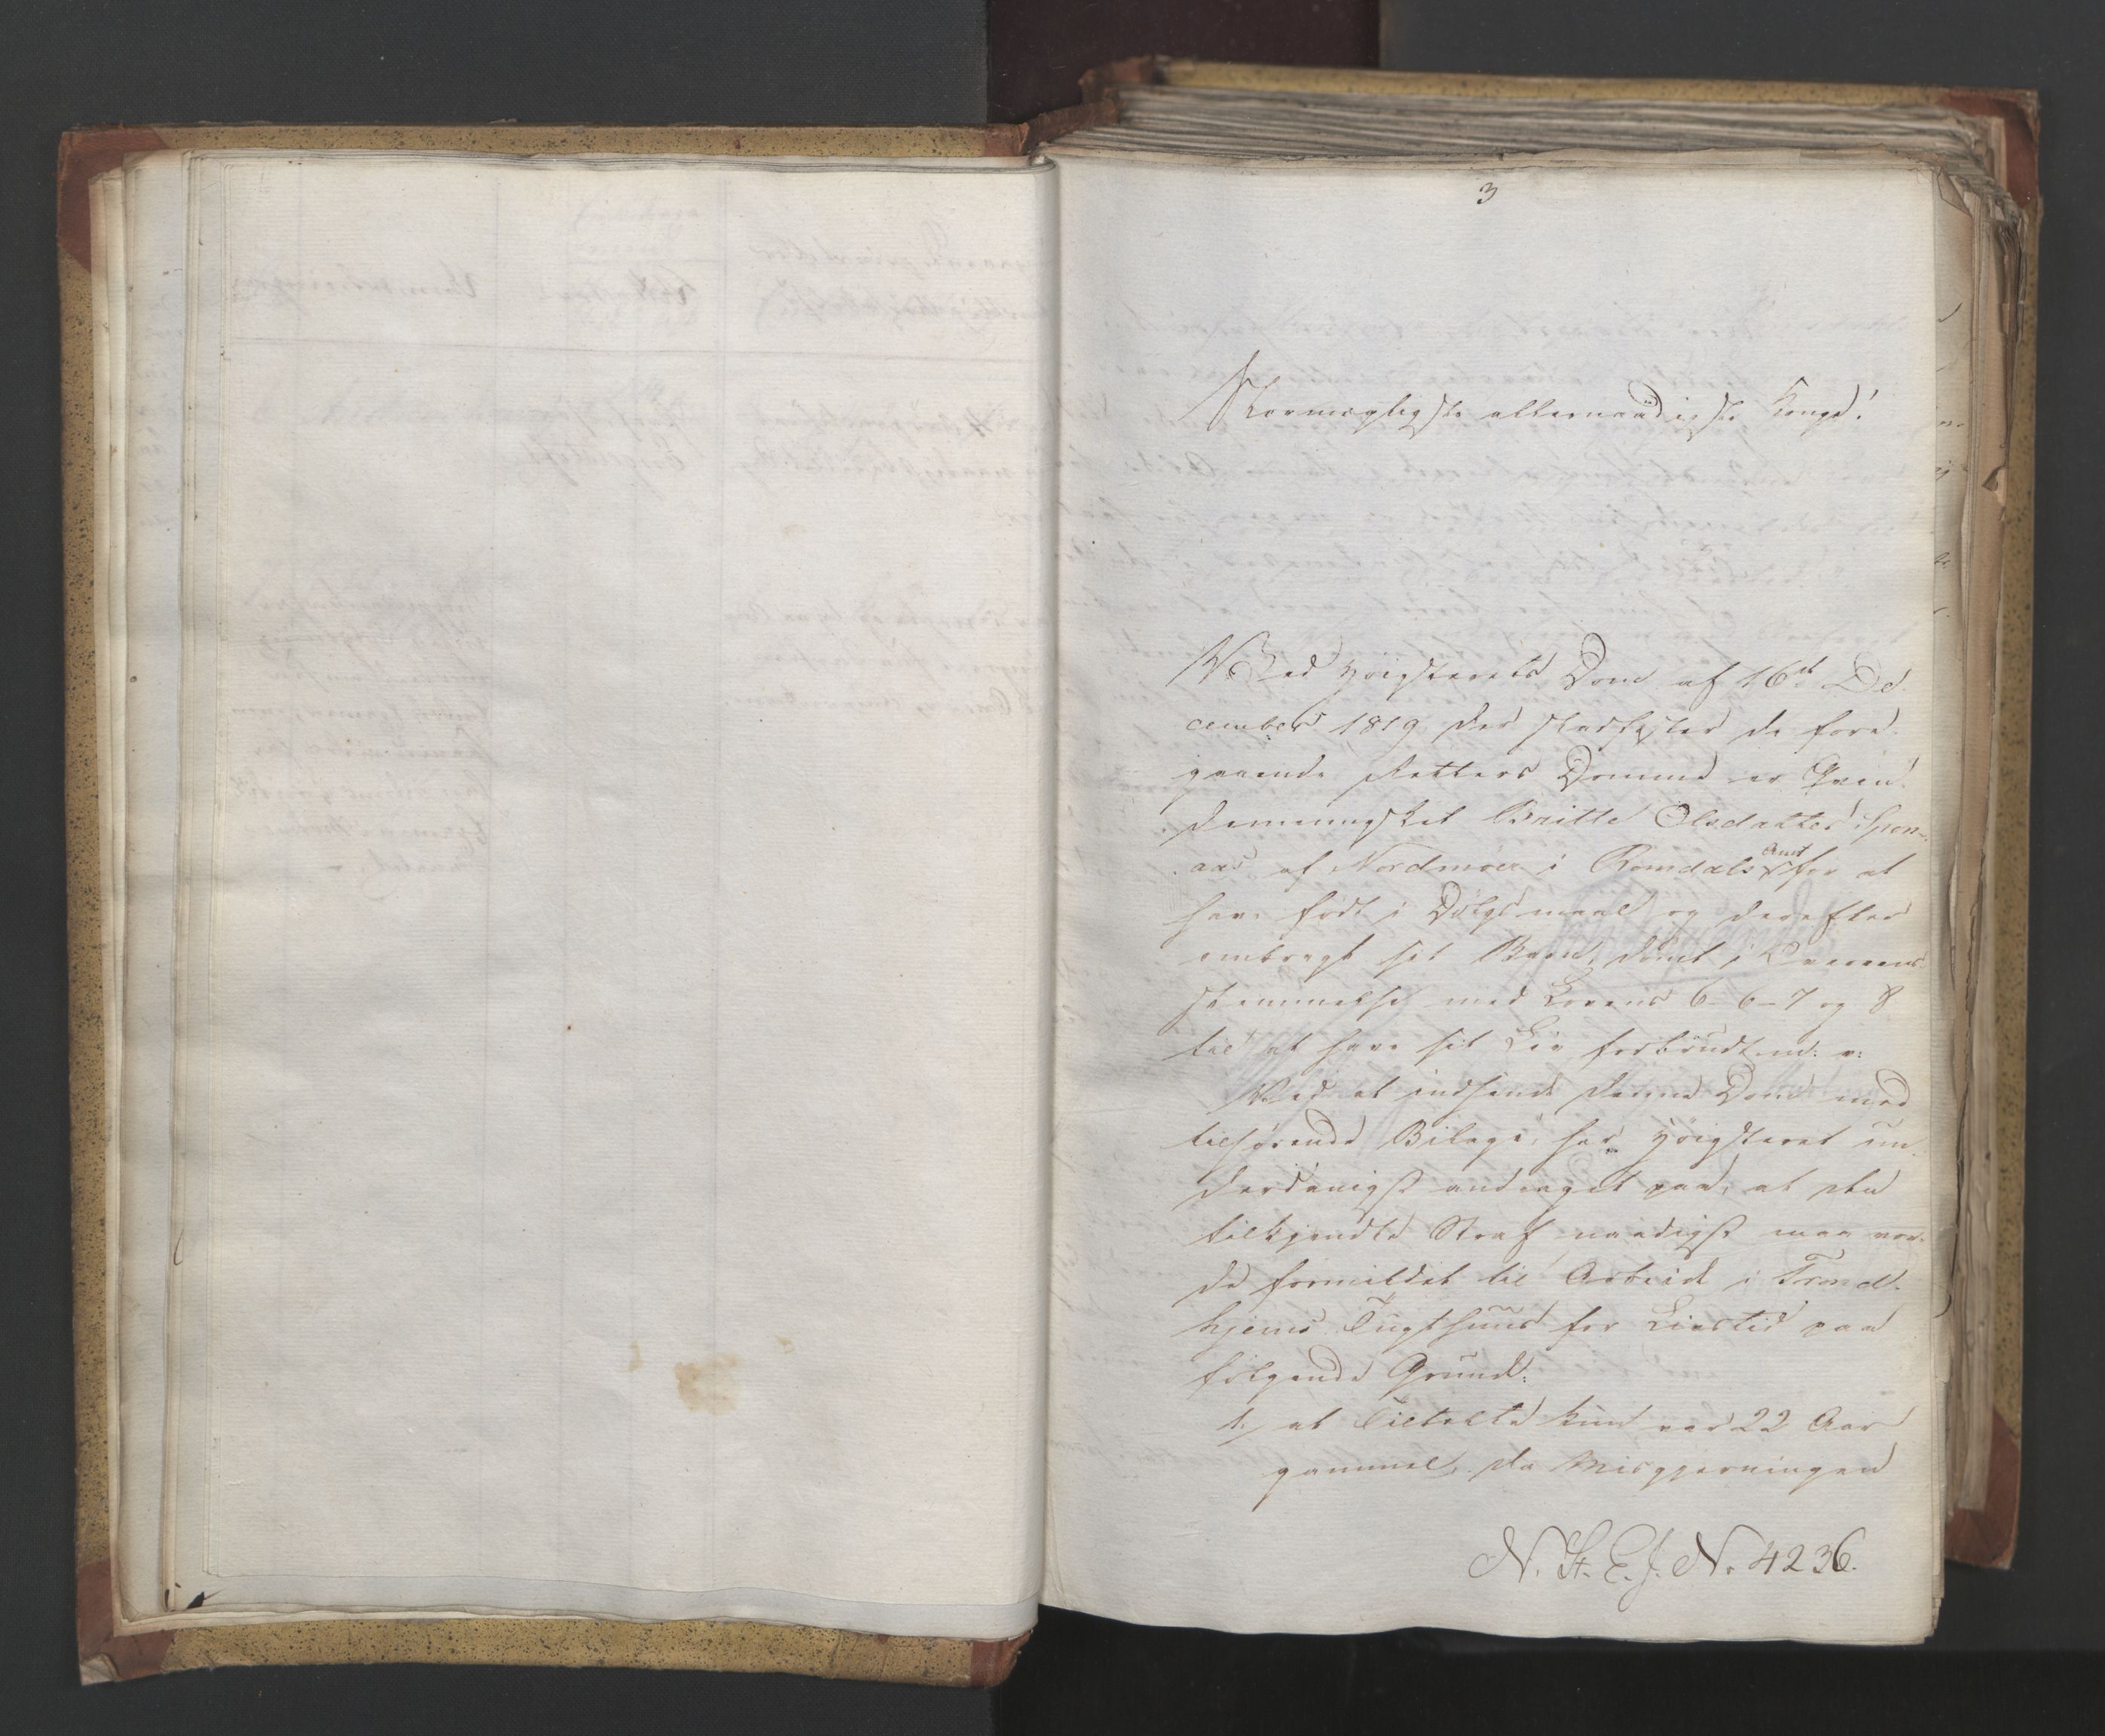 3
Stormægtigste allernaadigste Konge!
Ved Høiesterets Dom af 16de De-
cember 1819, der stadfæster de fore-
gaaende Retters Domme er Qvin-
demennesket Britte Olsdatter
aas af Nordmøer i Romdals Amt for at
have født i Dølgsmaal og derefter
ombragt sit Barn, dömt i Overeens-
stemmelse med Lovens 6-6-7 og 8
til at have sit Liv forbrudt m: v:
Ved at indsende denne Dom med
tilhørende Bilage, har Höiesteret un-
derdanigst andraget paa, at den
tilkjendte Straf naadigst maa vor-
de formildet til Arbeid i Trond-
hjems Tugthuus for Livstid paa
følgende Grunde:
1, at Tiltalte kun var 22 Aar
gammel, da Misgjerningen
N. St. E. J. No. 4236.